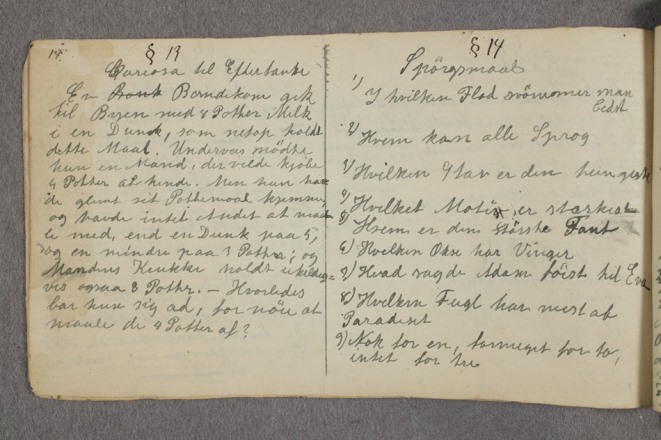 14.
§ 13
Curiosa til Eftertanke
En Bondekone gik
til Byen med 8 Potter Melk
i en Dunk, som netop holdt
dette Maal. Underveis mødte
hun en Mand, der vilde kjöbe
4 Potter af hende. Men hun havde
glemt sit Pottemaal hjemme,
og havde intet Andet at maa-
le med, end en Dunk paa 5,
og en mindre paa 3 Potter; og
Mandens Krukke holdt
vis ogsaa 8 Potter. — Hvorledes
bar hun sig ad, for nöie at
maale de 4 Potter af?
§ 14
Spörgsmaal
1) I hvilken Flod svömmer man
bedst
2) Hvem kan alle Sprog
3) Hvilken Stav er den
4) Hvilket Motiv er stærkest
5) Hvem er den störste Fant
6) Hvilken Okse har Vinger
7) Hvad sagde Adam först til Eva
8) Hvilken Fugl har mest af
Paradiset
9) Nok for en, formeget for to,
intet for tre